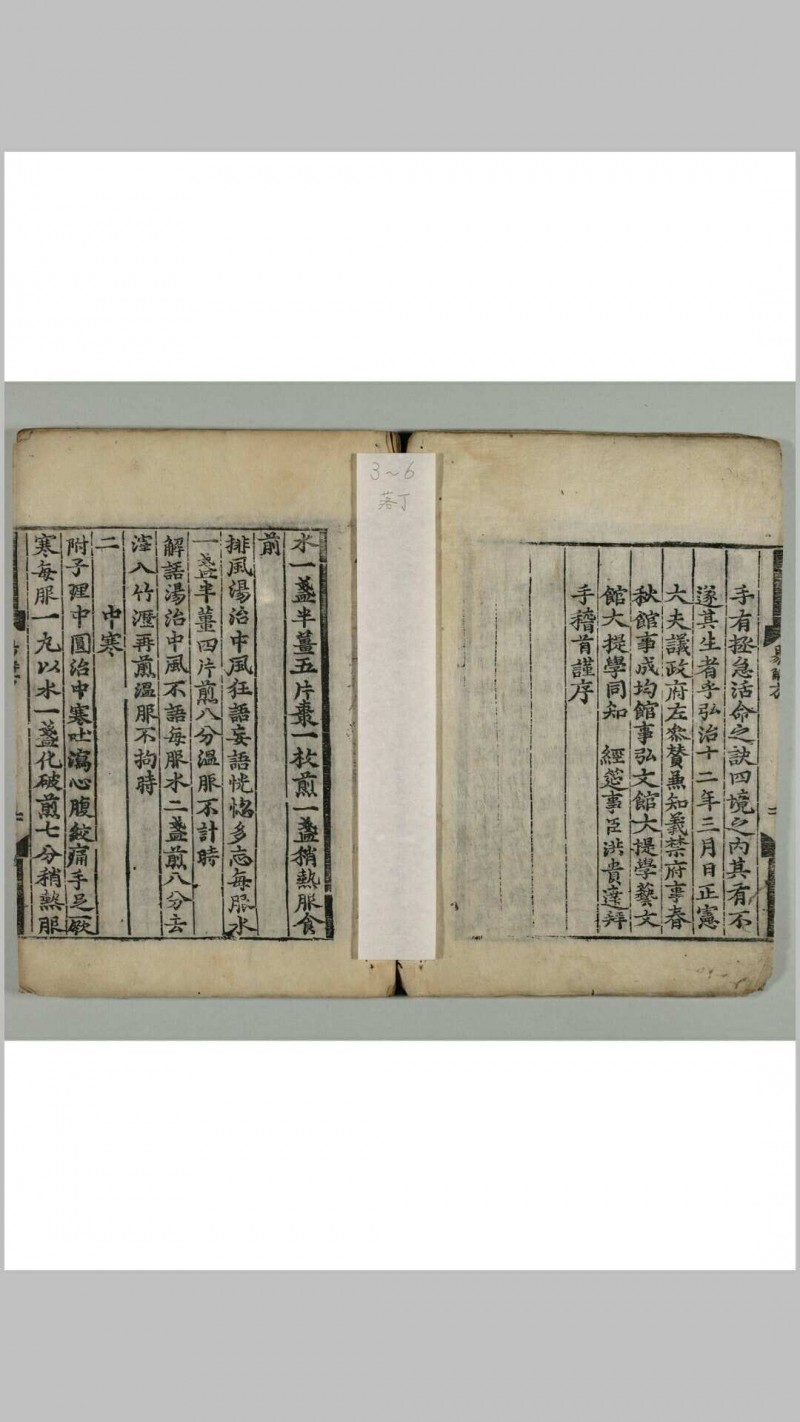 手有拯急活命之訣四境之內其有不
遂其生者乎弘治十二年三月日正憲
大夫議政府左叅賛兼知義禁府事春
秋館事成均館事弘文館大提學藝文
館大提學同知 經筵事臣洪貴達拜
手稽首謹序
3~6
落丁
水一盞半薑五片棗一枚煎一盞稍熱服食
前
排風湯治中風狂語妄語恍惚多忘每服水
一盞半薑四片煎八分溫服不計時
解語湯治中風不語每服水二盞煎八分去
滓入竹瀝再煎溫服不拘時
二 中寒
附子理中圓治中寒吐瀉心腹絞痛手足厥
寒每服一丸以水一盞化破煎七分稍熱服